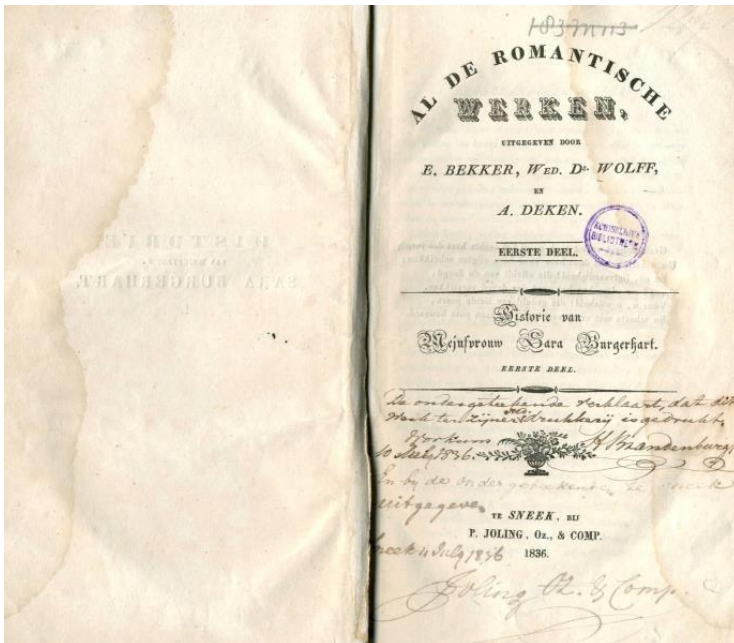 HISTORIE
VAN MEJUFVROUW
SARA BURGERHART.
I.
1837 N113
AL DE ROMANTISCHE
WERKEN,
UITGEGEVEN DOOR
E. BEKKER, WED. Ds. WOLFF,
EN
A. DEKEN.
KONINKLIJKE
BIBLIOTHEEK
EERSTE DEEL.
Historie van
Mejufvrouw Sara Burgerhart.
EERSTE DEEL.
De ondergeteekende verklaart, dat dit
Werk ter zijner drukkerij is gedrukt,
Workum
10 July 1836. H Brandenburgh
En by de ondergeteekenden te Sneek
uitgegeven
TE SNEEK, BIJ
P. JOLING, Oz., & COMP.
1836.
Sneek 11 July 1836
Joling Oz. & Comp.